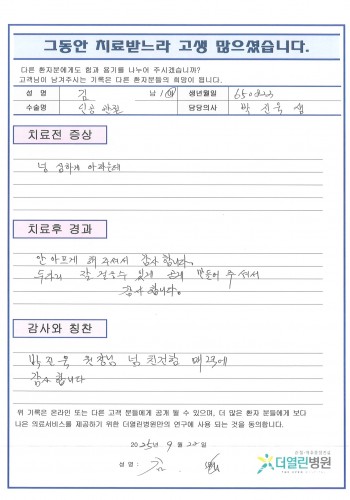 그동안 치료받느라 고생 많으셨습니다.
다른 환자분에게도 힘과 용기를 나누어 주시겠습니까?
고객님이 남겨주시는 기록은 다른 환자분들의 희망이 됩니다.
성 명 김 남 / 여 생년월일 650823
수술명 인공관절 담당의사 박진욱 샘
치료전 증상
넝 심하게 아파는데
치료후 경과
안아프게 해주셔서 감사합니다
두다리 잘 걸을수 있게 만들어 주셔서
감사합니다.
감사와 칭찬
박진욱 원장님 넘 친절함 때문에
감사합니다
위 기록은 온라인 또는 다른 고객 분들에게 공개 될 수 있으며, 더 많은 환자 분들에게 보다
나은 의료서비스를 제공하기 위한 더열린병원만의 연구에 사용 되는 것을 동의합니다.
2025년 9월 22일
성 명 : 김
더열린병원